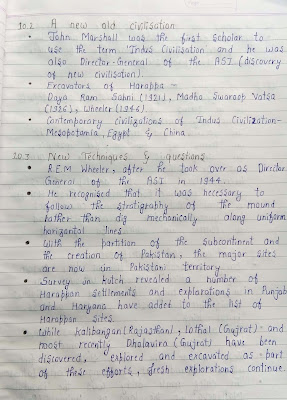 10.2 A new old civilisation
• John Marshall was the first scholar to
use the term 'Indus Civilisation and he was
also Director-General of the ASI (discovery
of new civilisation).
• Excavators of Harappa -
Daya Ram Sahni (1921), Madho Swaroop Vatsa
(1926), Wheeler (1946)
• Contemporary civilizations of Indus Civilization-
Mesopotamia, Egypt & China.
20.3 New Techniques & questions
• R.E.M Wheeler, after he took over as Director
General of the ASI in 1944.
• He recognised that it was necessary to
follow the stratigraphy of the mound
rather than dig mechanically along uniform
horizontal lines
• With the partition of the subcontinent and
the creation of Pakistan, the major sites
are now in Pakistani territory.
• Survey in Kutch revealed a number of
Harappan settlements and explorations in Punjab
and Haryana have added to the list of
Harappan sites.
• While Kalibangan (Rajasthan), Lothal (Gujrat) and
most recently Dholavira (Gujrat) have been
discovered, explored and excavated as part
of these efforts, fresh explorations continue.